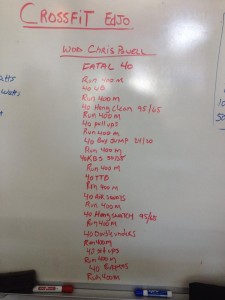 CROSSFIT EDJO
WOD CHRIS POWELL
FATAL 40
Run 400m
40 WB
Run 400m
40 Hang Clean 95/65
Run 400m
40 pull ups
Run 400m
40 Box Jump 24/20
Run 400m
40 KBS
Run 400m
40 TTB
Run 400m
40 Air squats
Run 400m
40 Hang snatch 95/65
Run 400m
40 Double unders
Run 400m
40 sit ups
Run 400m
40 Burpees
Run 400m